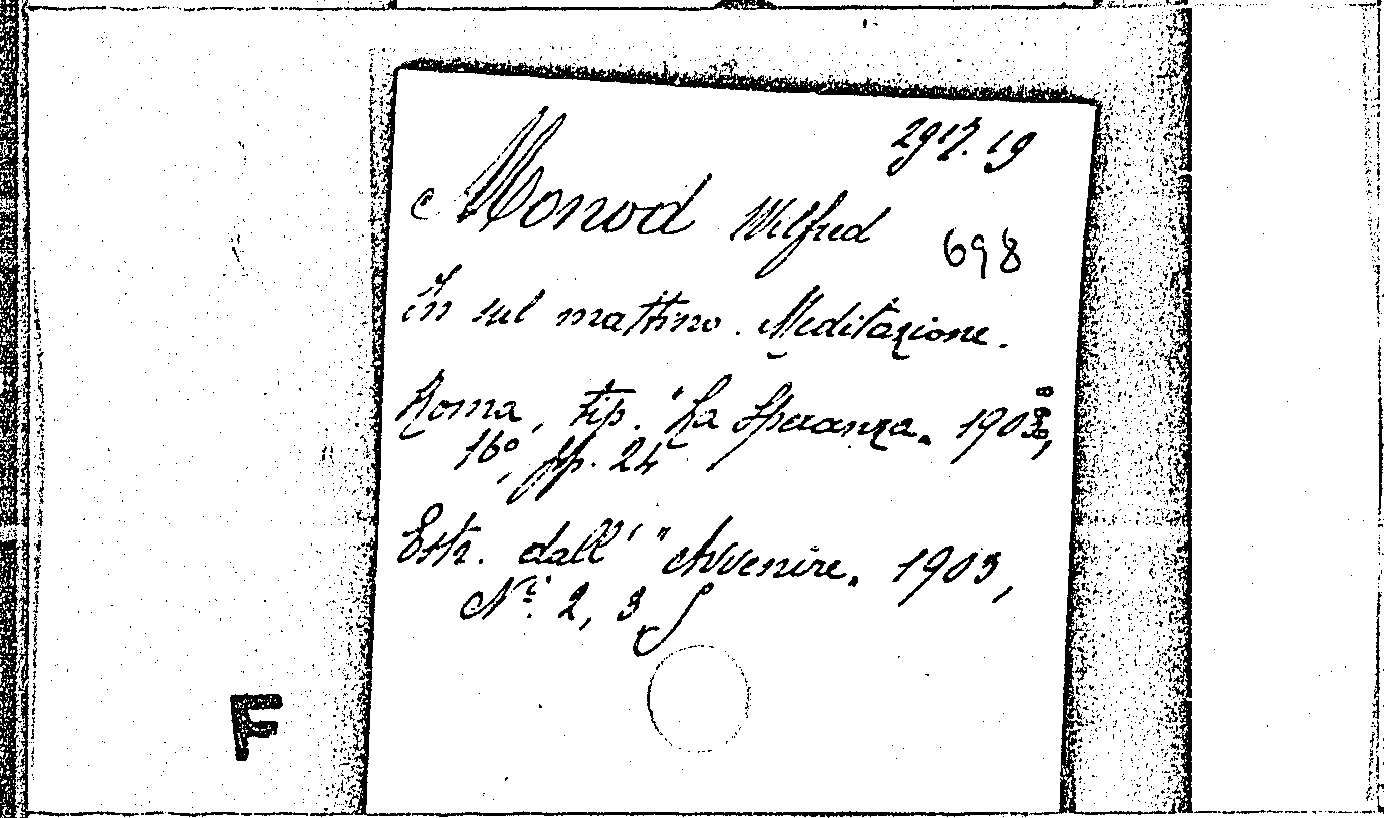 2917.19
Monod Wilfred 698
In sul mattino. Meditazione.
Roma, tip. "La Speranza" 1903,
16°, pp. 24
Estr. dall' "Avvenire" 1903,
Ni 2, 3
F